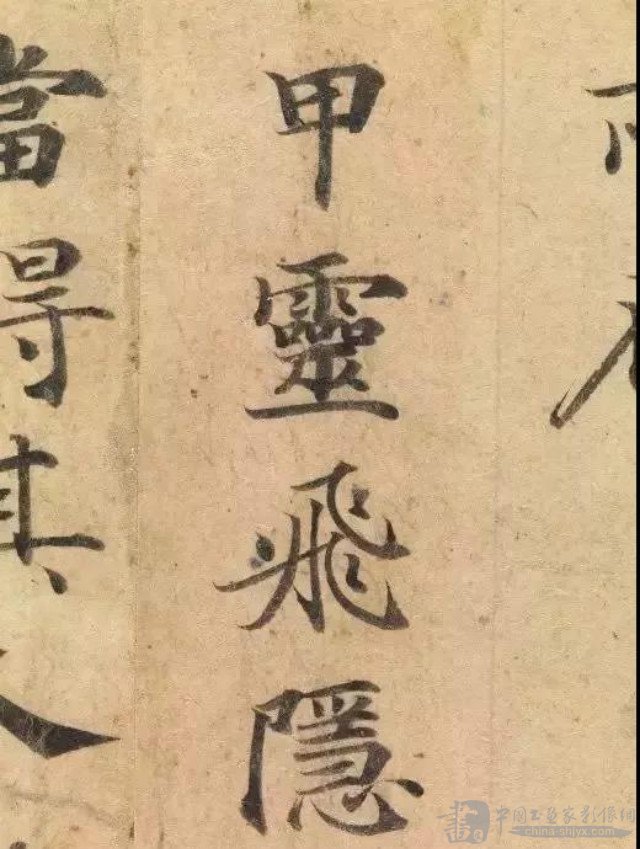 甲靈飛隱
當得其
中國书画家影像網
china-shjyx.com